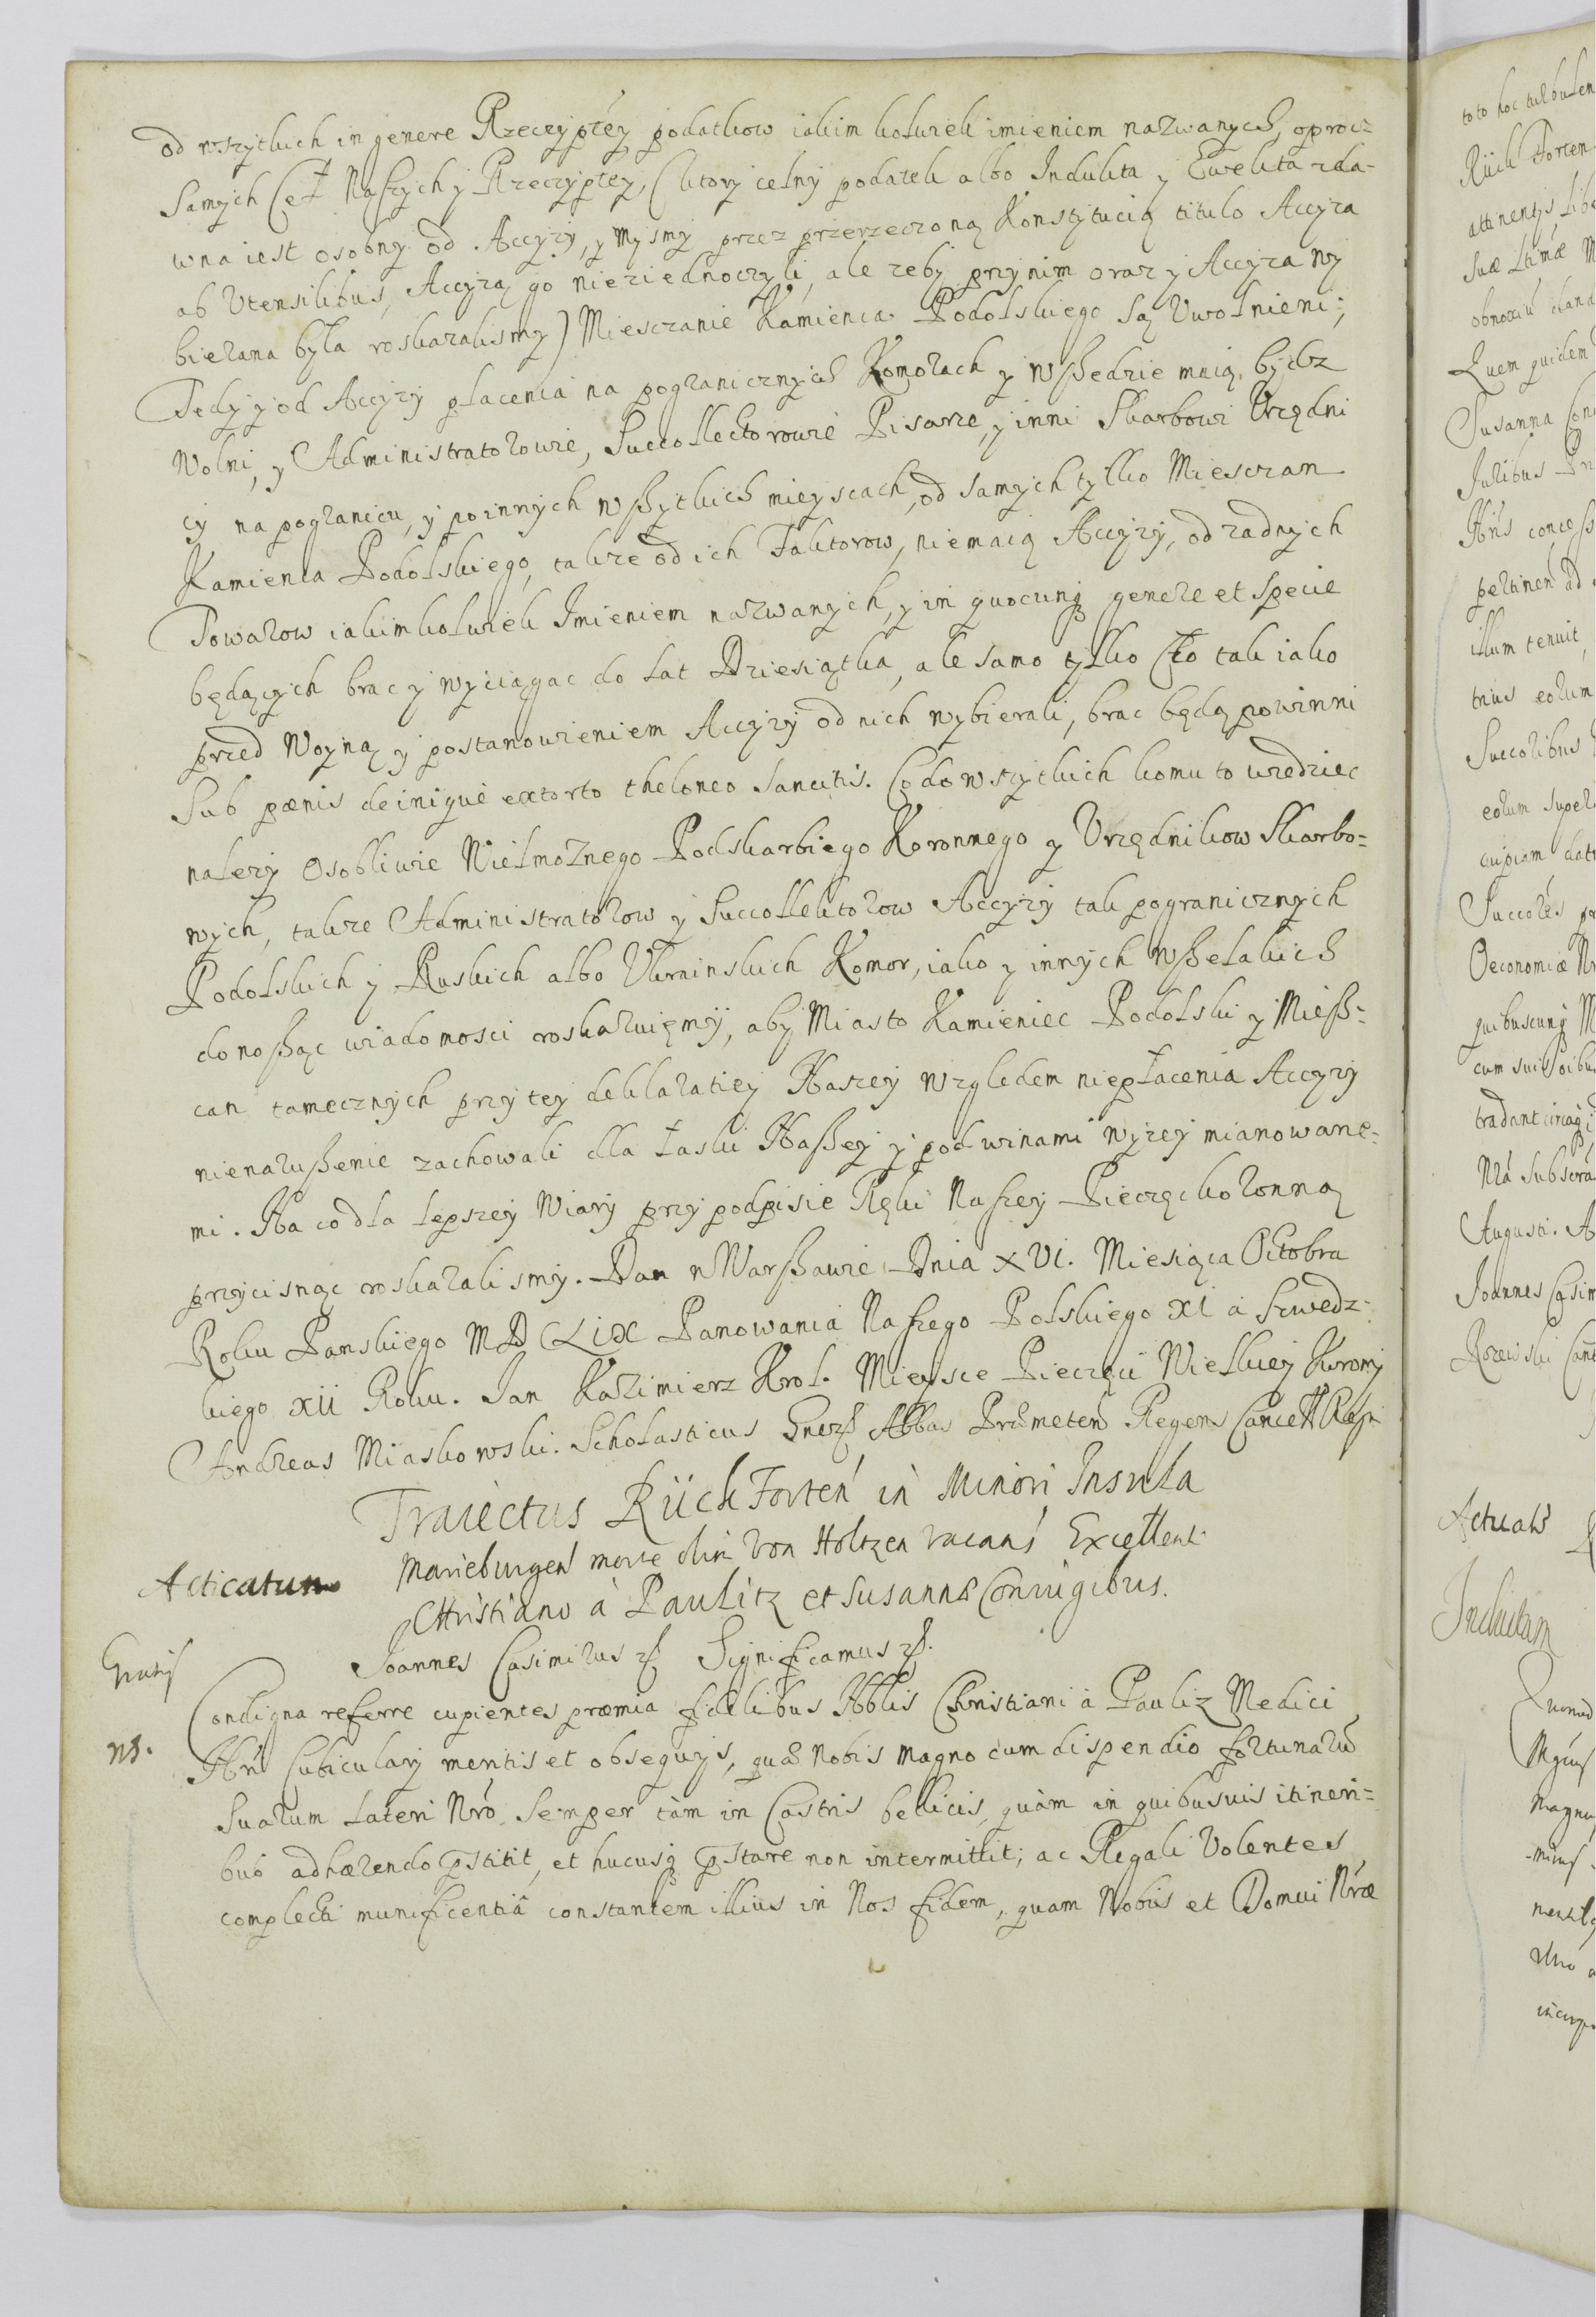 od wszytkich in genere Rzeczyptey podatkow iakim kolwiek imieniem nazwanych, oprocz
samych Ceł Naszych y Rzeczyptey, (ktory celny podatek albo Indukta y Ewekta zda-
wna iest osobny od Accyzy, y Mysmy przez przerzeczoną Konstytucią titulo Accyza
ab Vtensilibus, Accyzą go nieziednoczyli, ale zeby przy nim oraz y Accyza wy
bierana była roskazalismy) Miesczanie Kamienca Podolskiego są Vwolnieni;
Tedy y od Accyzy płacenia na pogranicznych Komorach y wszędzie maią bydz
Wolni, y Administratorowie, Succollectorowie Pisarze, y inni Skarbowi Vrzędni
cy na pograniczu, y po innych wszytkich mieyscach, od samych tylko Miesczan
Kamienca Podolskiego, takze od ich Faktorow, niemaią Accyzy, od zadnych
Towarow iakimkolwiek Imieniem nazwanych, y in quocunq genere et specie
będących brac y wyciągac do lat Dziesiątka, ale samo tylko Cło tak iako
przed Woyną y postanowieniem Accyzy od nich wybierali, brac będą powinni
Sub pœnis de inique extorto theloneo sancitis. Co do wszytkich komu to wiedziec
nalezy Osobliwie Wielmoznego Podskarbiego Koronnego y Vrzędnikow Skarbo-
wych, takze Administratorow y Succollektorow Accyzy tak pogranicznych
Podolskich y Ruskich albo Vkrainskich Komor, iako y innych wszelakich
donosząc wiadomosci roskazuięmy, aby Miasto Kamieniec Podolski y Miesz-
can tamecznych przy tey deklaratiey Naszey względem niepłacenia Accyzy
nienaruszenie zachowali dla łaski Naszey y pod winami wyzey mianowane-
mi. Na co dla lepszey Wiary przy podpisie Ręki Naszey Pieczęc koronną
przycisnąc roskazalismy. Dan w Warszawie Dnia XVI. Miesiąca Octobra
Roku Panskiego MDCLIX Panowania Naszego Polskiego XI a Szwedz-
kiego XII Roku. Jan Kazimierz Krol. Mieysce Pieczęci Wielkiey Korony
Andreas Miaskowski. Scholasticus Gnezn Abbas Præmeten Regens Cancell Regni
Traiectus Rück Forten in Minori Insula
Marieburgen morte olim Von Holtzen vacans Excellent
Acticatum
Christiano à Paulitz et Susannæ Conjugibus.
Gratis
Joannes Casimirus rz Significamus rz.
Condigna referre cupientes præmia fidelibus Nblis Christiani à Pauliz Medici
NB.
Nri Cubicularij meritis et obsequijs, quæ Nobis magno cum dispendio fortunarū
Suarum lateri Nrō semper tàm in Castris bellicis, quàm in quibusvis itineri-
bus adhærendo pstitit, et hucusq pstare non intermittit; ac Regali volentes
complecti munificentiâ constantem illius in Nos fidem, quam Nobis et Domui Nræ
toto hoc turbulen
Rück Forten
attinentijs
obnoxiū
Quem quidem
Susanna Con
Juribus
Nris concess
pertinen ad
illum tenuit
eorum
Succoribus
eorum super
cuipiam
Succores
Oeconomiæ
quibuscunq
cum suis
tradant
Nrā Subscr
Augusti.
Joannes Casim
Actuatū